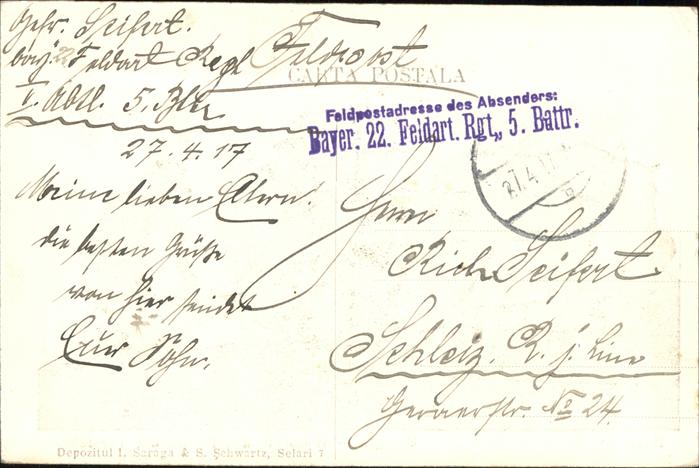 Gefr. Seifert.
bay. 22 Feldart Regt
II. Abtl. 5. Bttr
27.4.17
Meine lieben Eltern!
die besten Grüße
von hier sendet
Euer Sohn.
Feldpost
CARTA POSTALA
Feldpostadresse des Absenders:
Bayer. 22. Feldart. Rgt., 5. Battr.
27.4.17
Herrn
Rich. Seifert
Schleiz. R. j. Linie
Geraerstr. No 24.
Depozitul I. Saraga & S. Schwartz, Selari 7